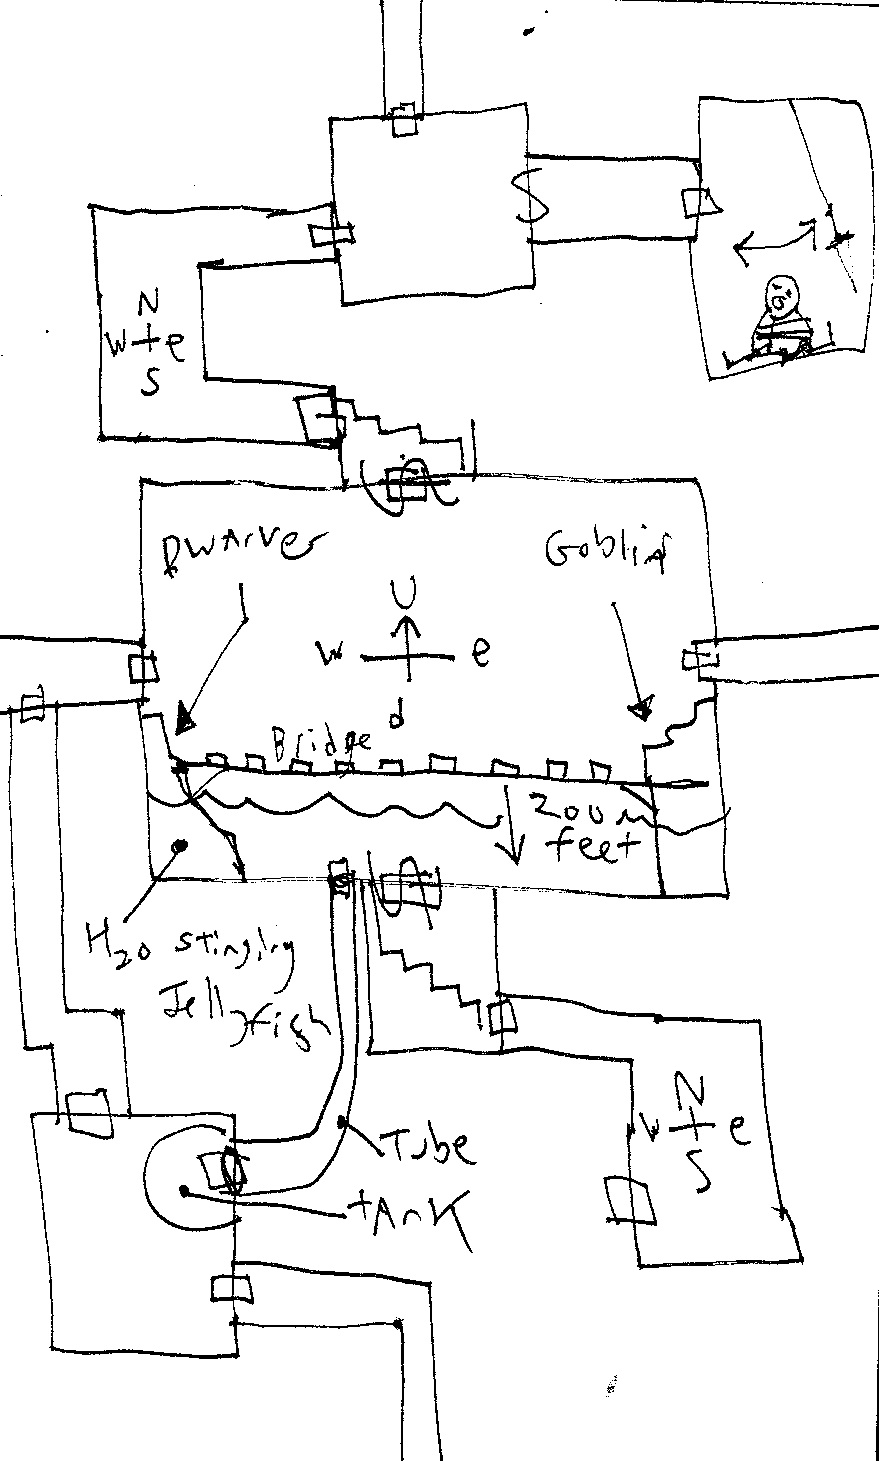 S
N
W e
S
Dwarves
Goblins
U
W e
d
Bridge
200
feet
H2O stinging
Jellyfish
N
W e
S
Tube
tAnK